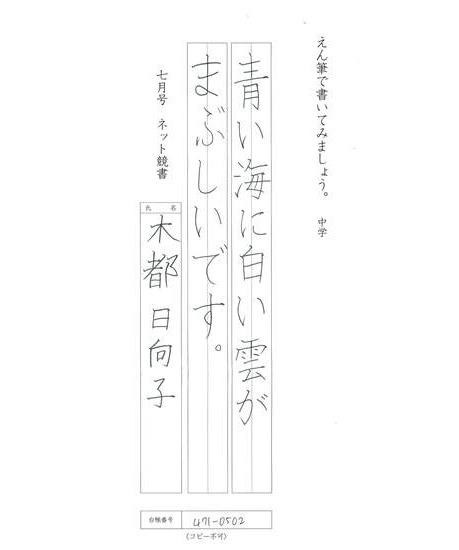 えん筆で書いてみましょう。 中学
青い海に白い雲が
まぶしいです。
七月号 ネット競書
氏名
木都 日向子
台帳番号 471-0502
(コピー不可)